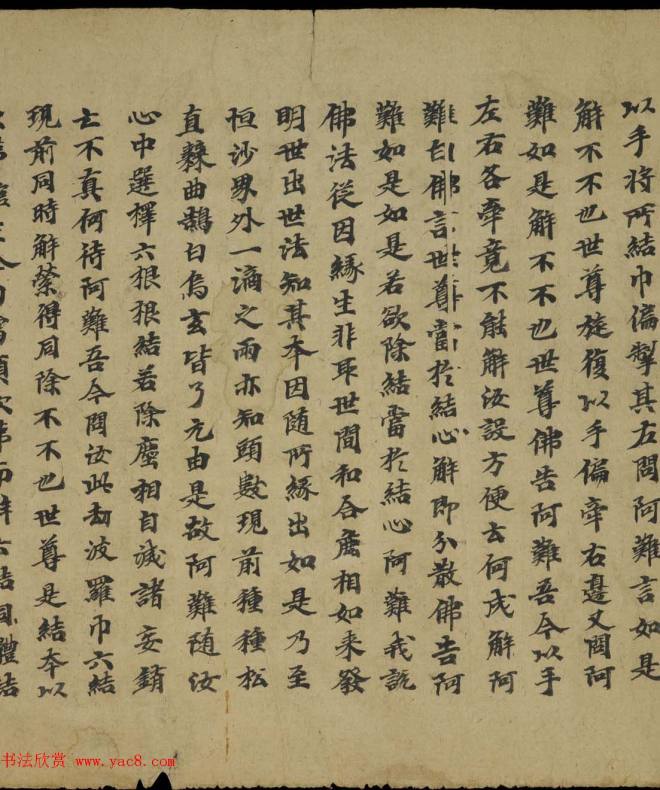 以手将所結巾偏掣其左問阿難言如是
解不不也世尊旋復以手偏牽右邊又問阿
難如是解不不也世尊佛告阿難吾今以手
左右各牽竟不能解汝設方便云何成解阿
難白佛言世尊當於結心解即分散佛告阿
難如是如是若欲除結當於結心阿難我說
佛法從因緣生非取世間和合麁相如來發
明世出世法知其本因隨所緣出如是乃至
恒沙界外一滴之雨亦知頭數現前種種松
直棘曲鵠白烏玄皆了元由是故阿難隨汝
心中選擇六根根結若除塵相自滅諸妄銷
亡不真何待阿難吾今問汝此劫波羅巾六結
現前同時解縈得同除不不也世尊是結本以
須次第而解六結同體結
书法欣赏 www.yac8.com